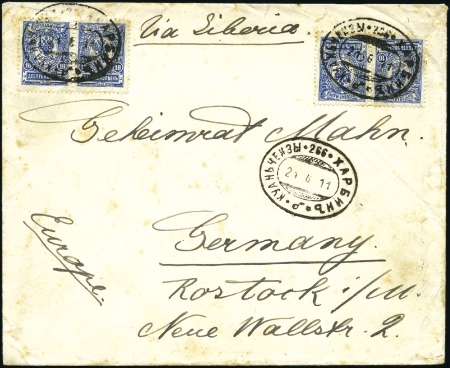 Via Siberia
Geheimrat Mahn.
КУАНЬЧЕНЗЫ • 266 • ХАРБИНЪ
6 11
Europe.
Germany.
Rostock i/M.
Neue Wallstr. 2.